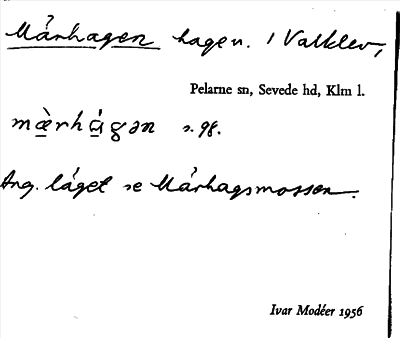 Mårhagen hagen. i Valklev,
Pelarne sn, Sevede hd, Klm l.
s. 98.
Ang. läget se Mårhagsmossen.
Ivar Modéer 1956